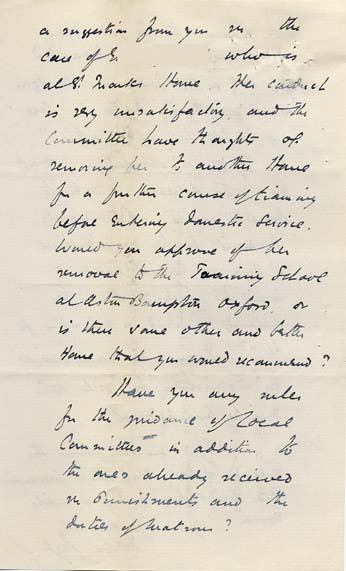 a suggestion from you in the
case of E. who is
at St. Mark's Home. Her conduct
is very unsatisfactory and the
Committee have thoughts of
removing her to another Home
for a further course of training
before entering Domestic Service.
Would you approve of her
removal to the Training School
at Aston Bampton Oxford, or
is there some other and better
Home that you would recommend?
Have you any rules
for the guidance of Local
Committees in addition to
the ones already received
on Punishments and the
duties of Matrons?